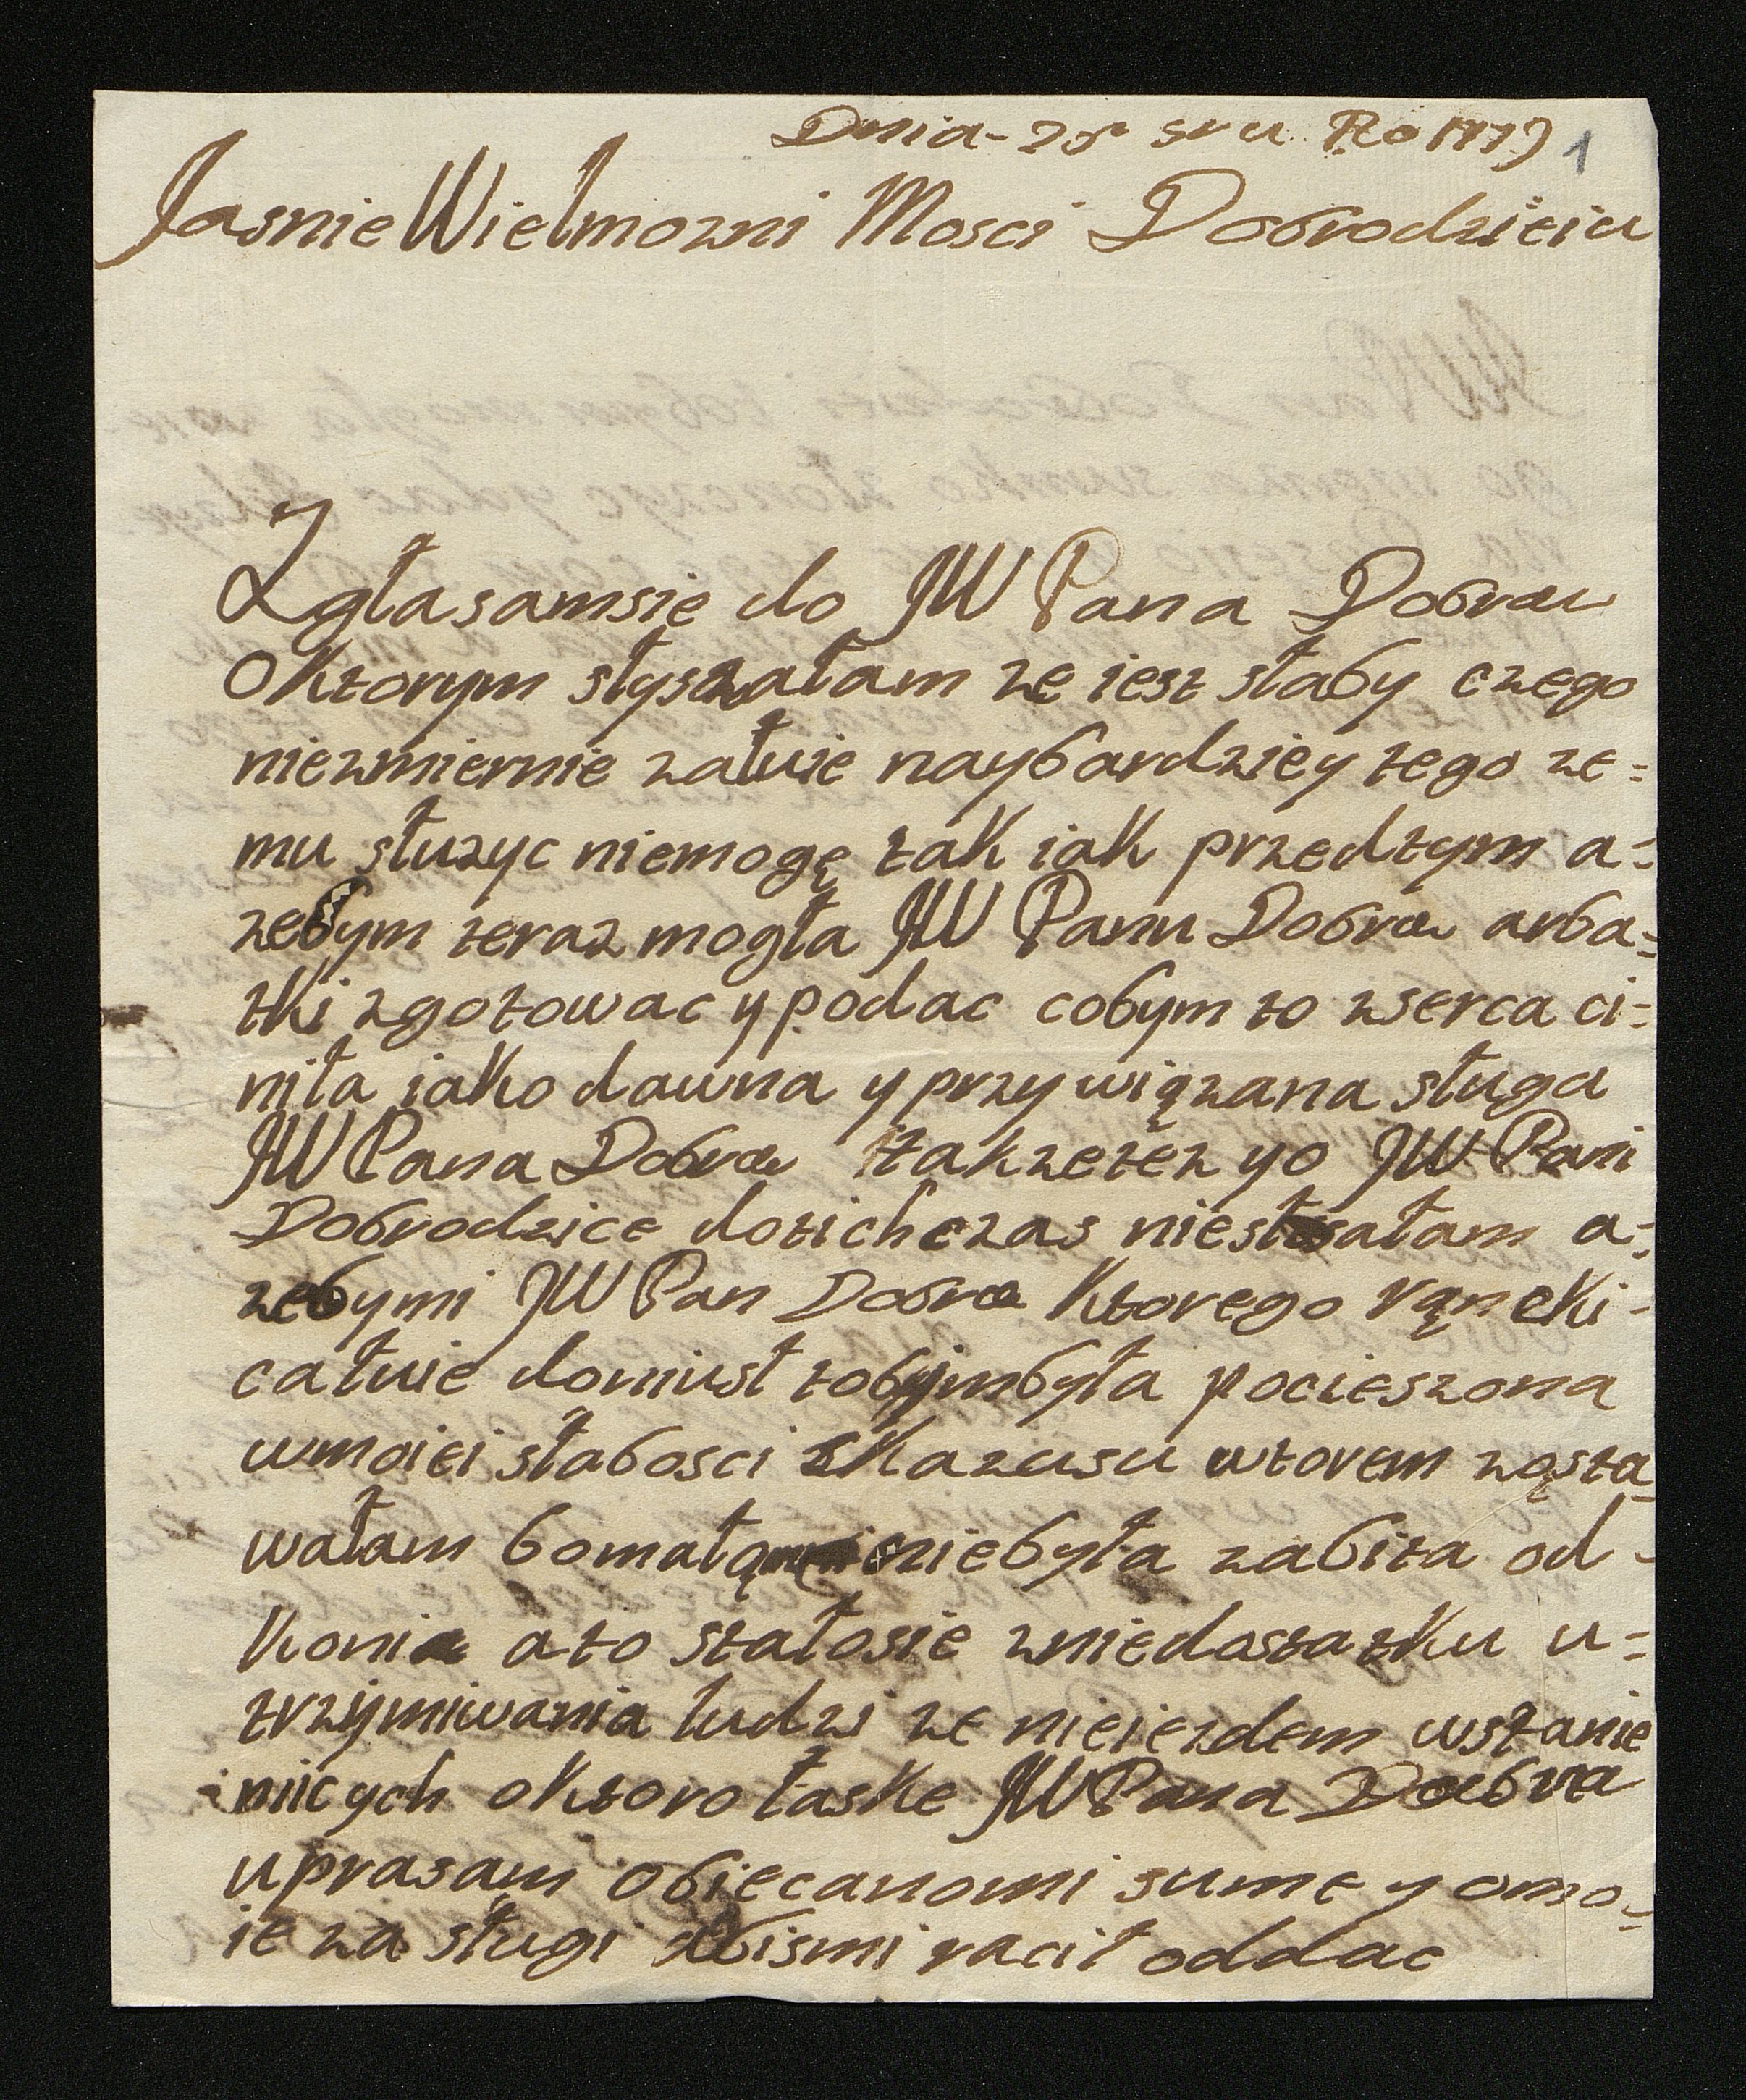 Dnia - 25 Ro 1779 1
Jasnie Wielmozni Mosci Dobrodzieiu
Zgłasamsię do JW Pana Dobrou
Oktorym słyszałam ze iest słaby czego
niezmiernie załuie naybardziey tego ze=
mu słuzyc niemogę tak iak przedtym a=
zebym teraz mogła JW Panu Dobrou arba=
tki zgotowac y podac cobym to zserca ci=
niła iako dawna y przywiązana sługa
JW Pana Dobrou takzetez yo JW Pani
Dobrodzice dotichczas niesłesałam a=
zebymi JW Pan Dobro Ktorego rąncki-
całuie doniusł tobymbyła pocieszona
wmoiei słabosci zKazusu wtorem ząsta
wałam bomałą niebyła zabita od-
Konia ato stałosie zniedostatku u=
trzijmiwania ludzi ze nieiezdem wstanie
inicych oktoro łaske JW Pana Doobra
uprasam Obiecanomi sume y omo=
ie za sługi abismi racił oddac